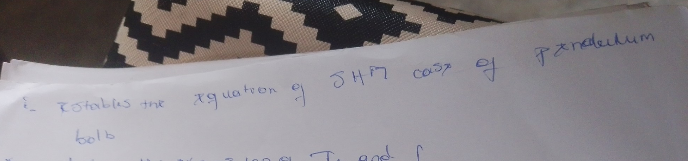 i- Estables the Equation of SHM case of Pendulum
bolb
T and f